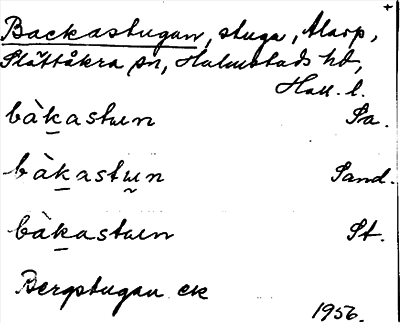 +
Backastugan, stuga, Alarp,
Slättåkra sn, Halmstads hd,
Hall. l.
bàkastɯn Sa.
bàkastɯ̰n Sand.
bàkastɯn St.
Bergstugan ek
1956.